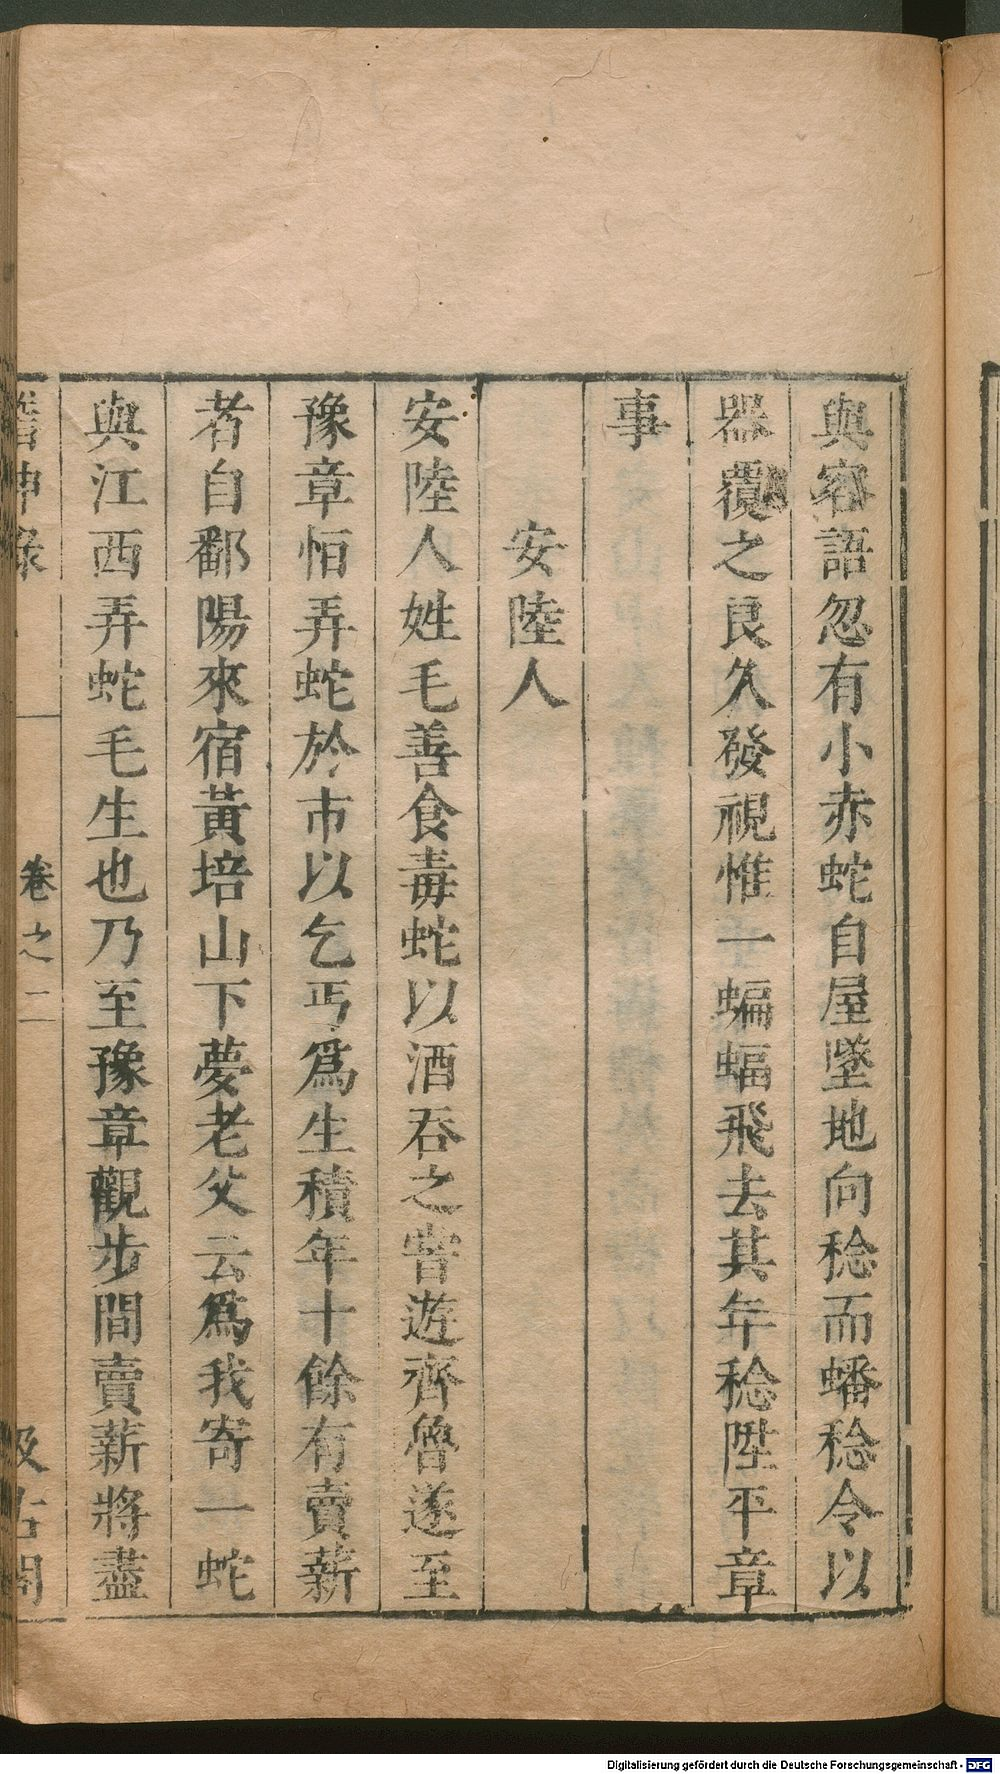 與客語忽有小赤蛇自屋墜地向稔而蟠稔令以
器覆之良久發視惟一蝙蝠飛去其年稔陞平章
事
安陸人
安陸人姓毛善食毒蛇以酒吞之嘗遊齊魯遂至
豫章恒弄蛇於市以乞丐爲生積年十餘有賣薪
者自鄱陽來宿黃培山下夢老父云爲我寄一蛇
與江西弄蛇毛生也乃至豫章觀步間賣薪將盡
稽神錄
卷之二
汲古閣
Digitalisierung gefördert durch die Deutsche Forschungsgemeinschaft - DFG